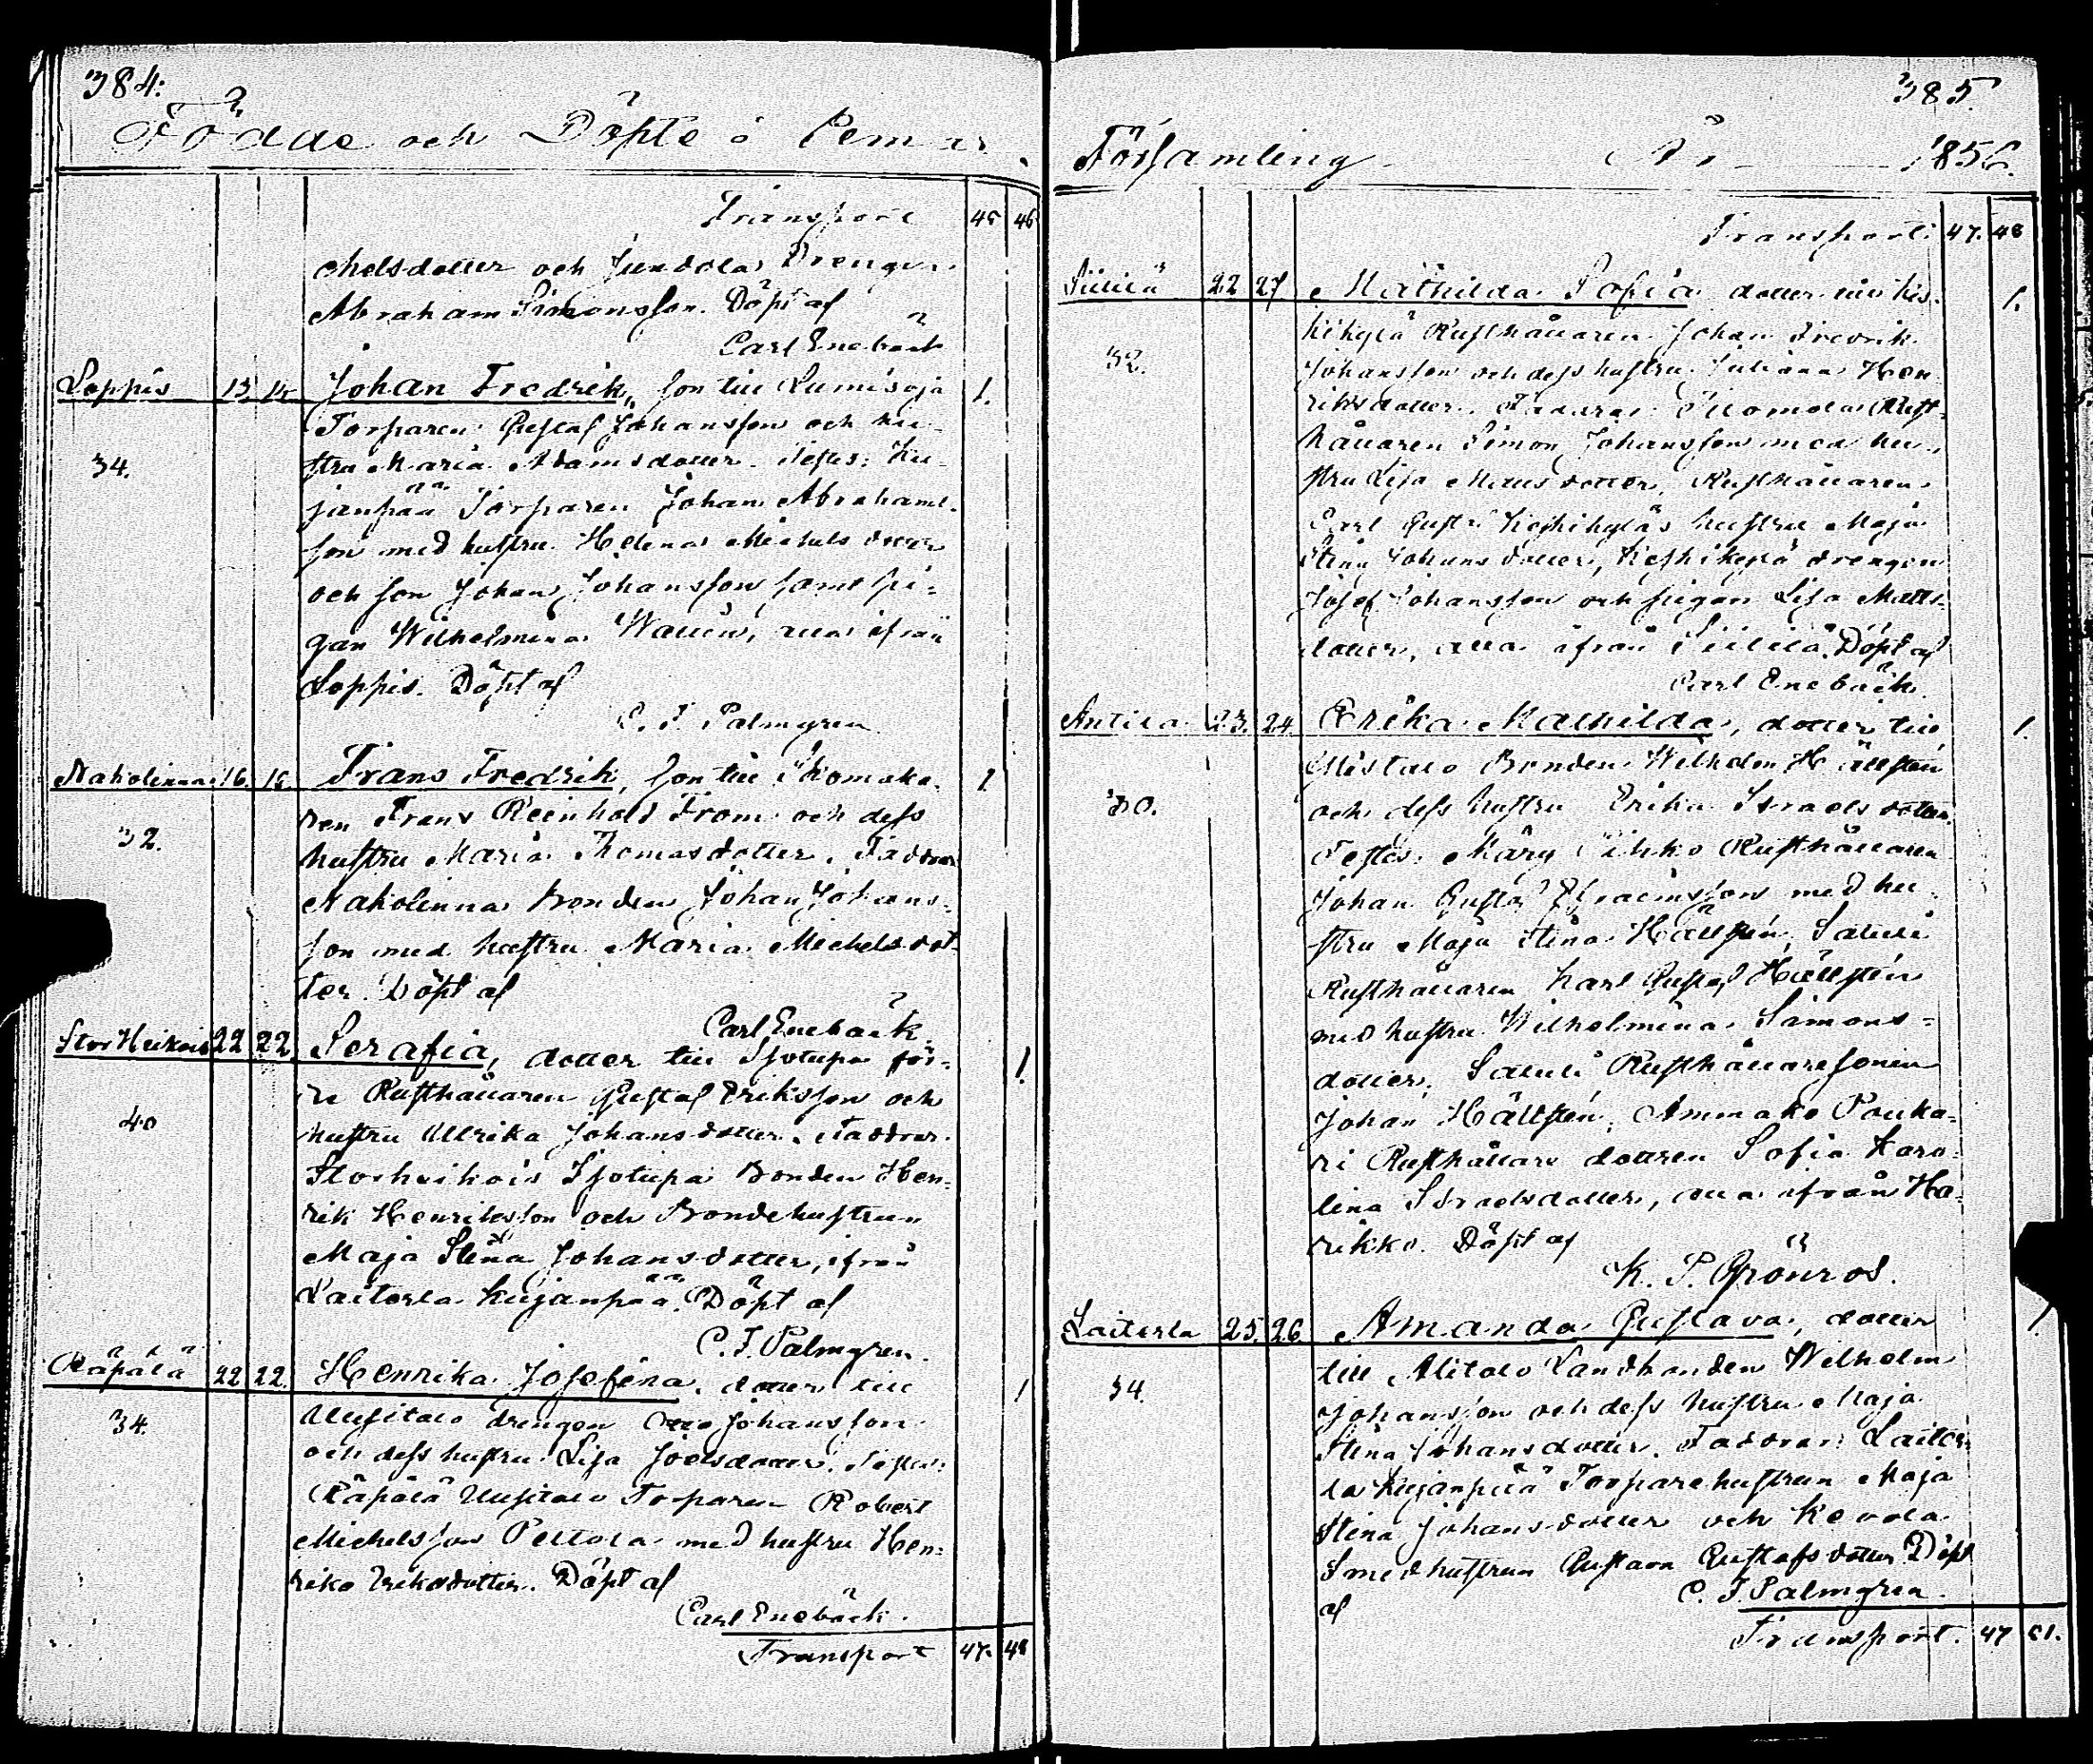 384.
Födde och Döpte i Pemar
Transport 45 46
chelsdotter och Junddla Drengen
Abraham Simonsson. Döpt af
Carl Enebäck
Loppis 13. 14. Johan Fredrik, son till Lumisoja 1.
Torparen Gustaf Johansson och hu-
34. stru Maria Adamsdotter. Testes: Ku-
janpää Torparen Johan Abrahams-
son med hustru Helena Michelsdotter
och son Johan Johansson samt pi-
gan Wilhelmina Wallin, alla ifrån
Loppis. Döpt af
C. F. Palmgren
Nakolinna 16. 16. Frans Fredrik, son till Skomaka- 1
ren Frans Reinhold From och dess
32. hustru Maria Thomasdotter. Faddrar
Nakolinna Bonden Johan Johans-
son med hustru Maria Michelsdot-
ter. Döpt af
Carl Enebäck.
Stor Heikois 22 22 Serafia, dotter till Sjotupa för- 1
re Rusthållaren Gustaf Eriksson och
40 hustru Ullrika Johansdotter. Faddrar
Storheikois Sjotupa Bonden Hen-
rik Henriksson och Bondehustrun
Maja Stina Johansdotter, ifrån
Laiterla Kujanpää. Döpt af
C. F. Palmgren.
Räpälä 22 22. Henrika Josefina, dotter till 1
34. Uusitalo drengen Otto Johansson
och dess hustru Lisa Joelsdotter. Testes:
Räpälä Uusitalo Torparen Robert
Michelsson Peltola med hustru Hen-
rika Eriksdotter. Döpt af
Carl Enebäck.
Transport 47. 48
385.
Församling År 1856.
Transport 47. 48
22 27 Mathilda Sofia dotter till Kes- 1.
kikylä Rusthållaren Johan Fredrik
32. Johansson och dess hustru Juliana Hen-
riksdotter. Faddrar: Rust-
hållaren Simon Johansson med hu-
stru Lisa Mattsdotter, Rusthållaren
Carl Gustaf Keskikyläs hustru Maja
Stina Johansdotter, Keskikylä drengen
Josef Johansson och pigan Lisa Matts-
dotter, alla ifrån Döpt af
Carl Enebäck.
Antila 23. 24. Erika Mathilda, dotter till 1.
Bonden Wilhelm Hällstén
30. och dess hustru Erika Israelsdotter.
Testes: Märy Pihko Rusthållaren
Johan Gustaf Efraimsson med hu-
stru Maja Stina Hällstén,
Rusthållaren Karl Gustaf Hällstén
med hustru Wilhelmina Simons-
dotter, Rusthållaresonen
Johan Hällstén, Ammako Pouka-
ri Rusthållare dottren Sofia Karo-
lina Israelsdotter, alla ifrån Ha-
likko. Döpt af
K. P. Grönros.
Laiterla 25. 26 Amanda Gustava, dotter 1
till Alitalo Landbonden Wilhelm
34. Johansson och dess hustru Maja
Stina Johansdotter. Faddrar: Laiter-
la Kujanpää Torparehustrun Maja
Stina Johansdotter och Kevola
Smedhustrun Gustava Gustafsdotter. Döpt
af C. F. Palmgren.
Transport. 47 51.